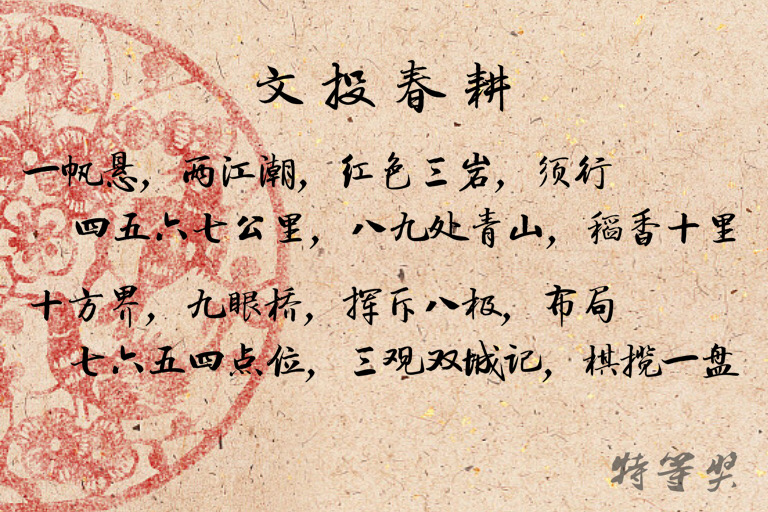 文投春耕
一帆悬，两江潮，红色三岩，须行
四五六七公里，八九处青山，稻香十里
十方界，九眼桥，挥斥八极，布局
七六五四点位，三观双城记，棋揽一盘
特等奖